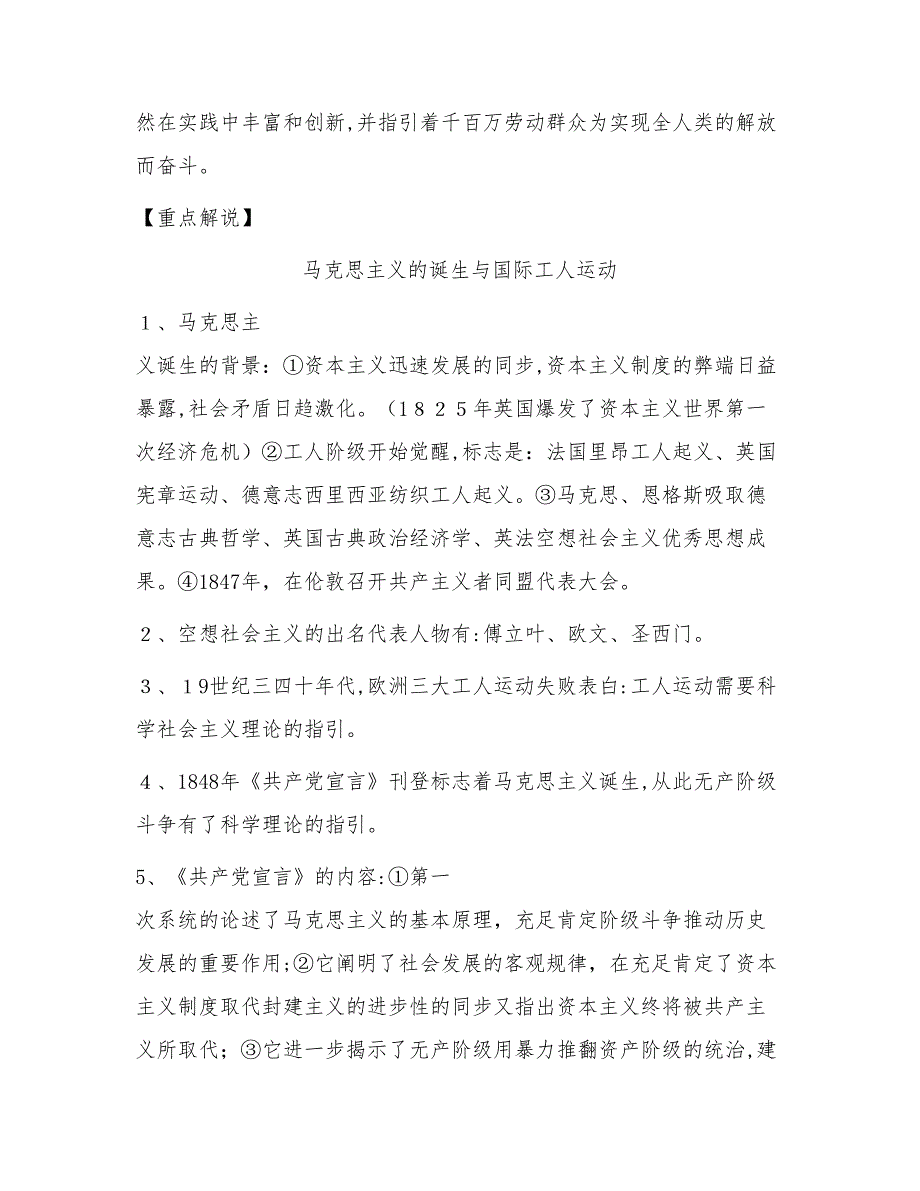 然在实践中丰富和创新,并指引着千百万劳动群众为实现全人类的解放
而奋斗。
【重点解说】
马克思主义的诞生与国际工人运动
１、马克思主
义诞生的背景：①资本主义迅速发展的同步,资本主义制度的弊端日益
暴露,社会矛盾日趋激化。（1８２５年英国爆发了资本主义世界第一
次经济危机）②工人阶级开始觉醒,标志是：法国里昂工人起义、英国
宪章运动、德意志西里西亚纺织工人起义。③马克思、恩格斯吸取德
意志古典哲学、英国古典政治经济学、英法空想社会主义优秀思想成
果。④1847年，在伦敦召开共产主义者同盟代表大会。
２、空想社会主义的出名代表人物有:傅立叶、欧文、圣西门。
３、１9世纪三四十年代,欧洲三大工人运动失败表白:工人运动需要科
学社会主义理论的指引。
４、1848年《共产党宣言》刊登标志着马克思主义诞生,从此无产阶级
斗争有了科学理论的指引。
5、《共产党宣言》的内容:①第一
次系统的论述了马克思主义的基本原理，充足肯定阶级斗争推动历史
发展的重要作用;②它阐明了社会发展的客观规律，在充足肯定了资本
主义制度取代封建主义的进步性的同步又指出资本主义终将被共产主
义所取代；③它进一步揭示了无产阶级用暴力推翻资产阶级的统治,建